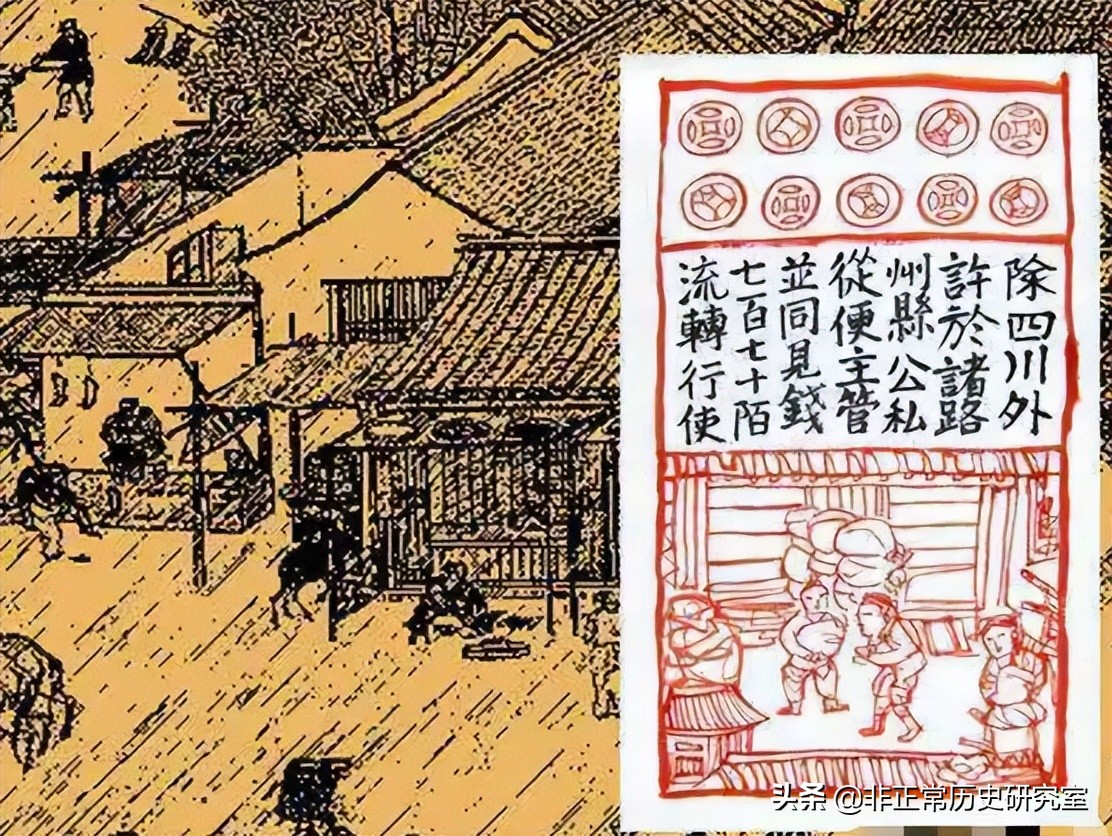 除四川外
許於諸路
州縣公私
從便主管
並同見錢
七百七十陌
流轉行使
头条 @非正常历史研究室